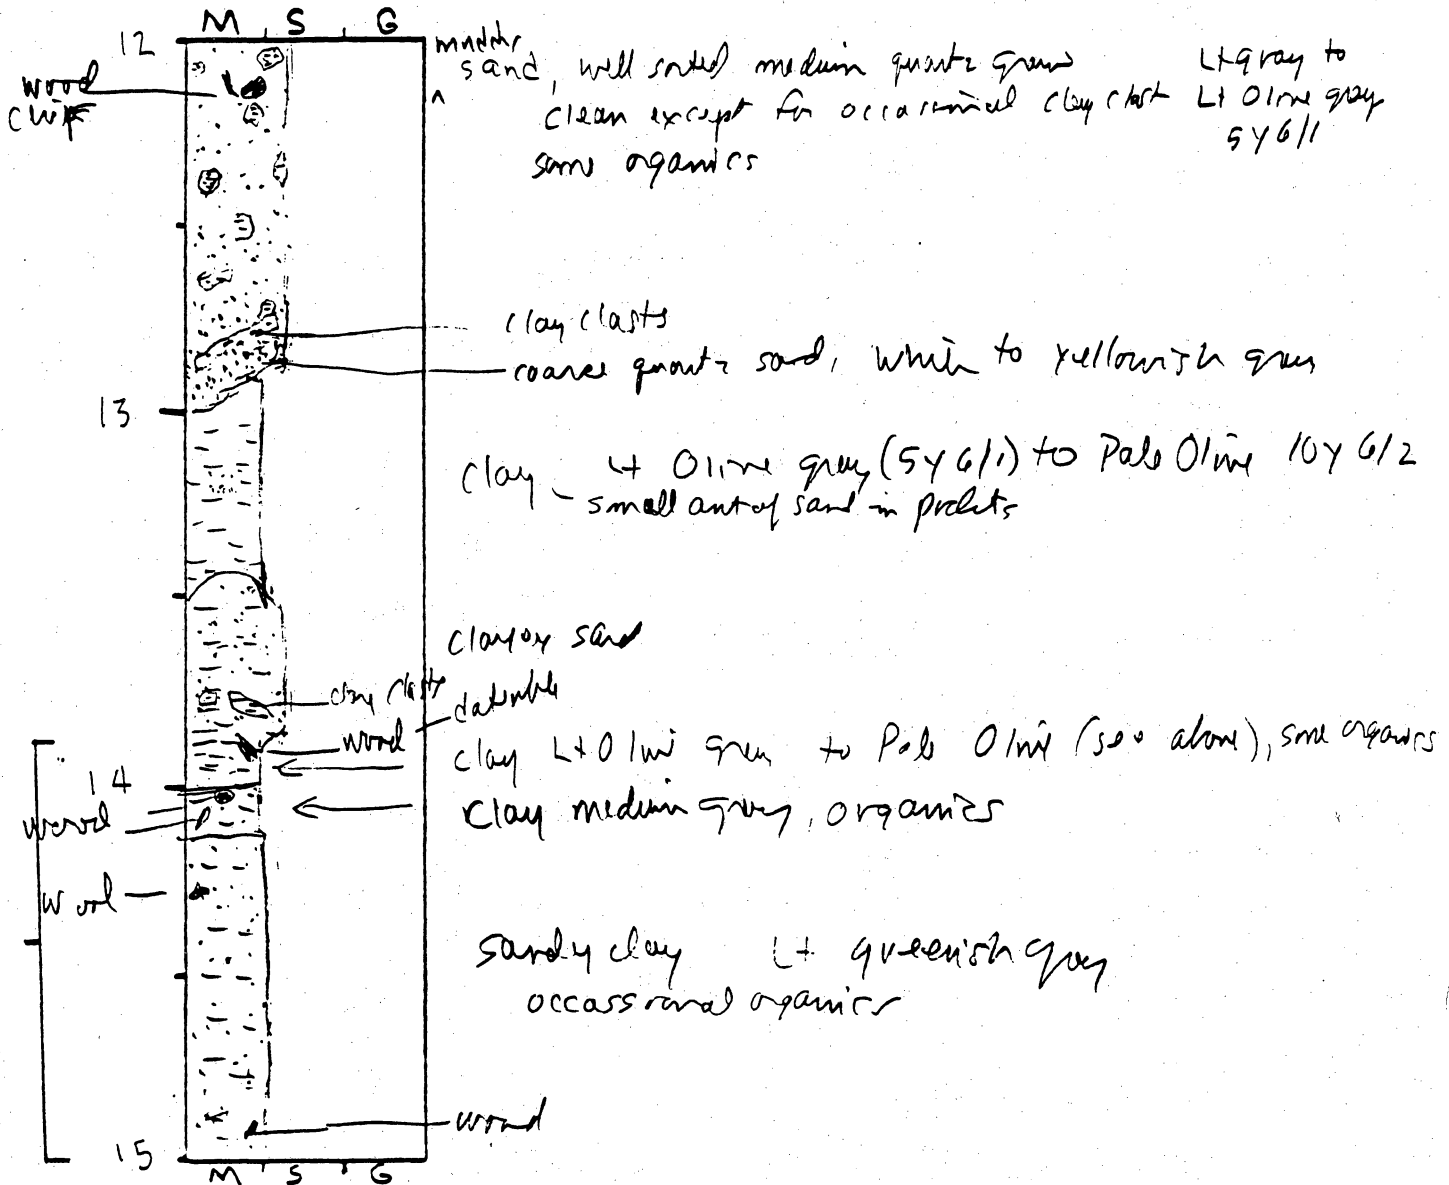 M S G
12
wood
chips
sand, well sorted medium quartz grains
Lt gray to
clean except for occassional clay clast
Lt Olive gray
5Y 6/1
some organics
clay clasts
coarse quartz sand, white to yellowish gray
13
clay Lt Olive gray (5Y 6/1) to Pale Olive 10Y 6/2
- small amt of sand in pockets
clayey sand
clay clasts
dateable
wood
clay Lt Olive gray to Pale Olive (see above), some organics
14
clay medium gray, organics
wood
wood
sandy clay Lt greenish gray
occassional organics
wood
15
M S G